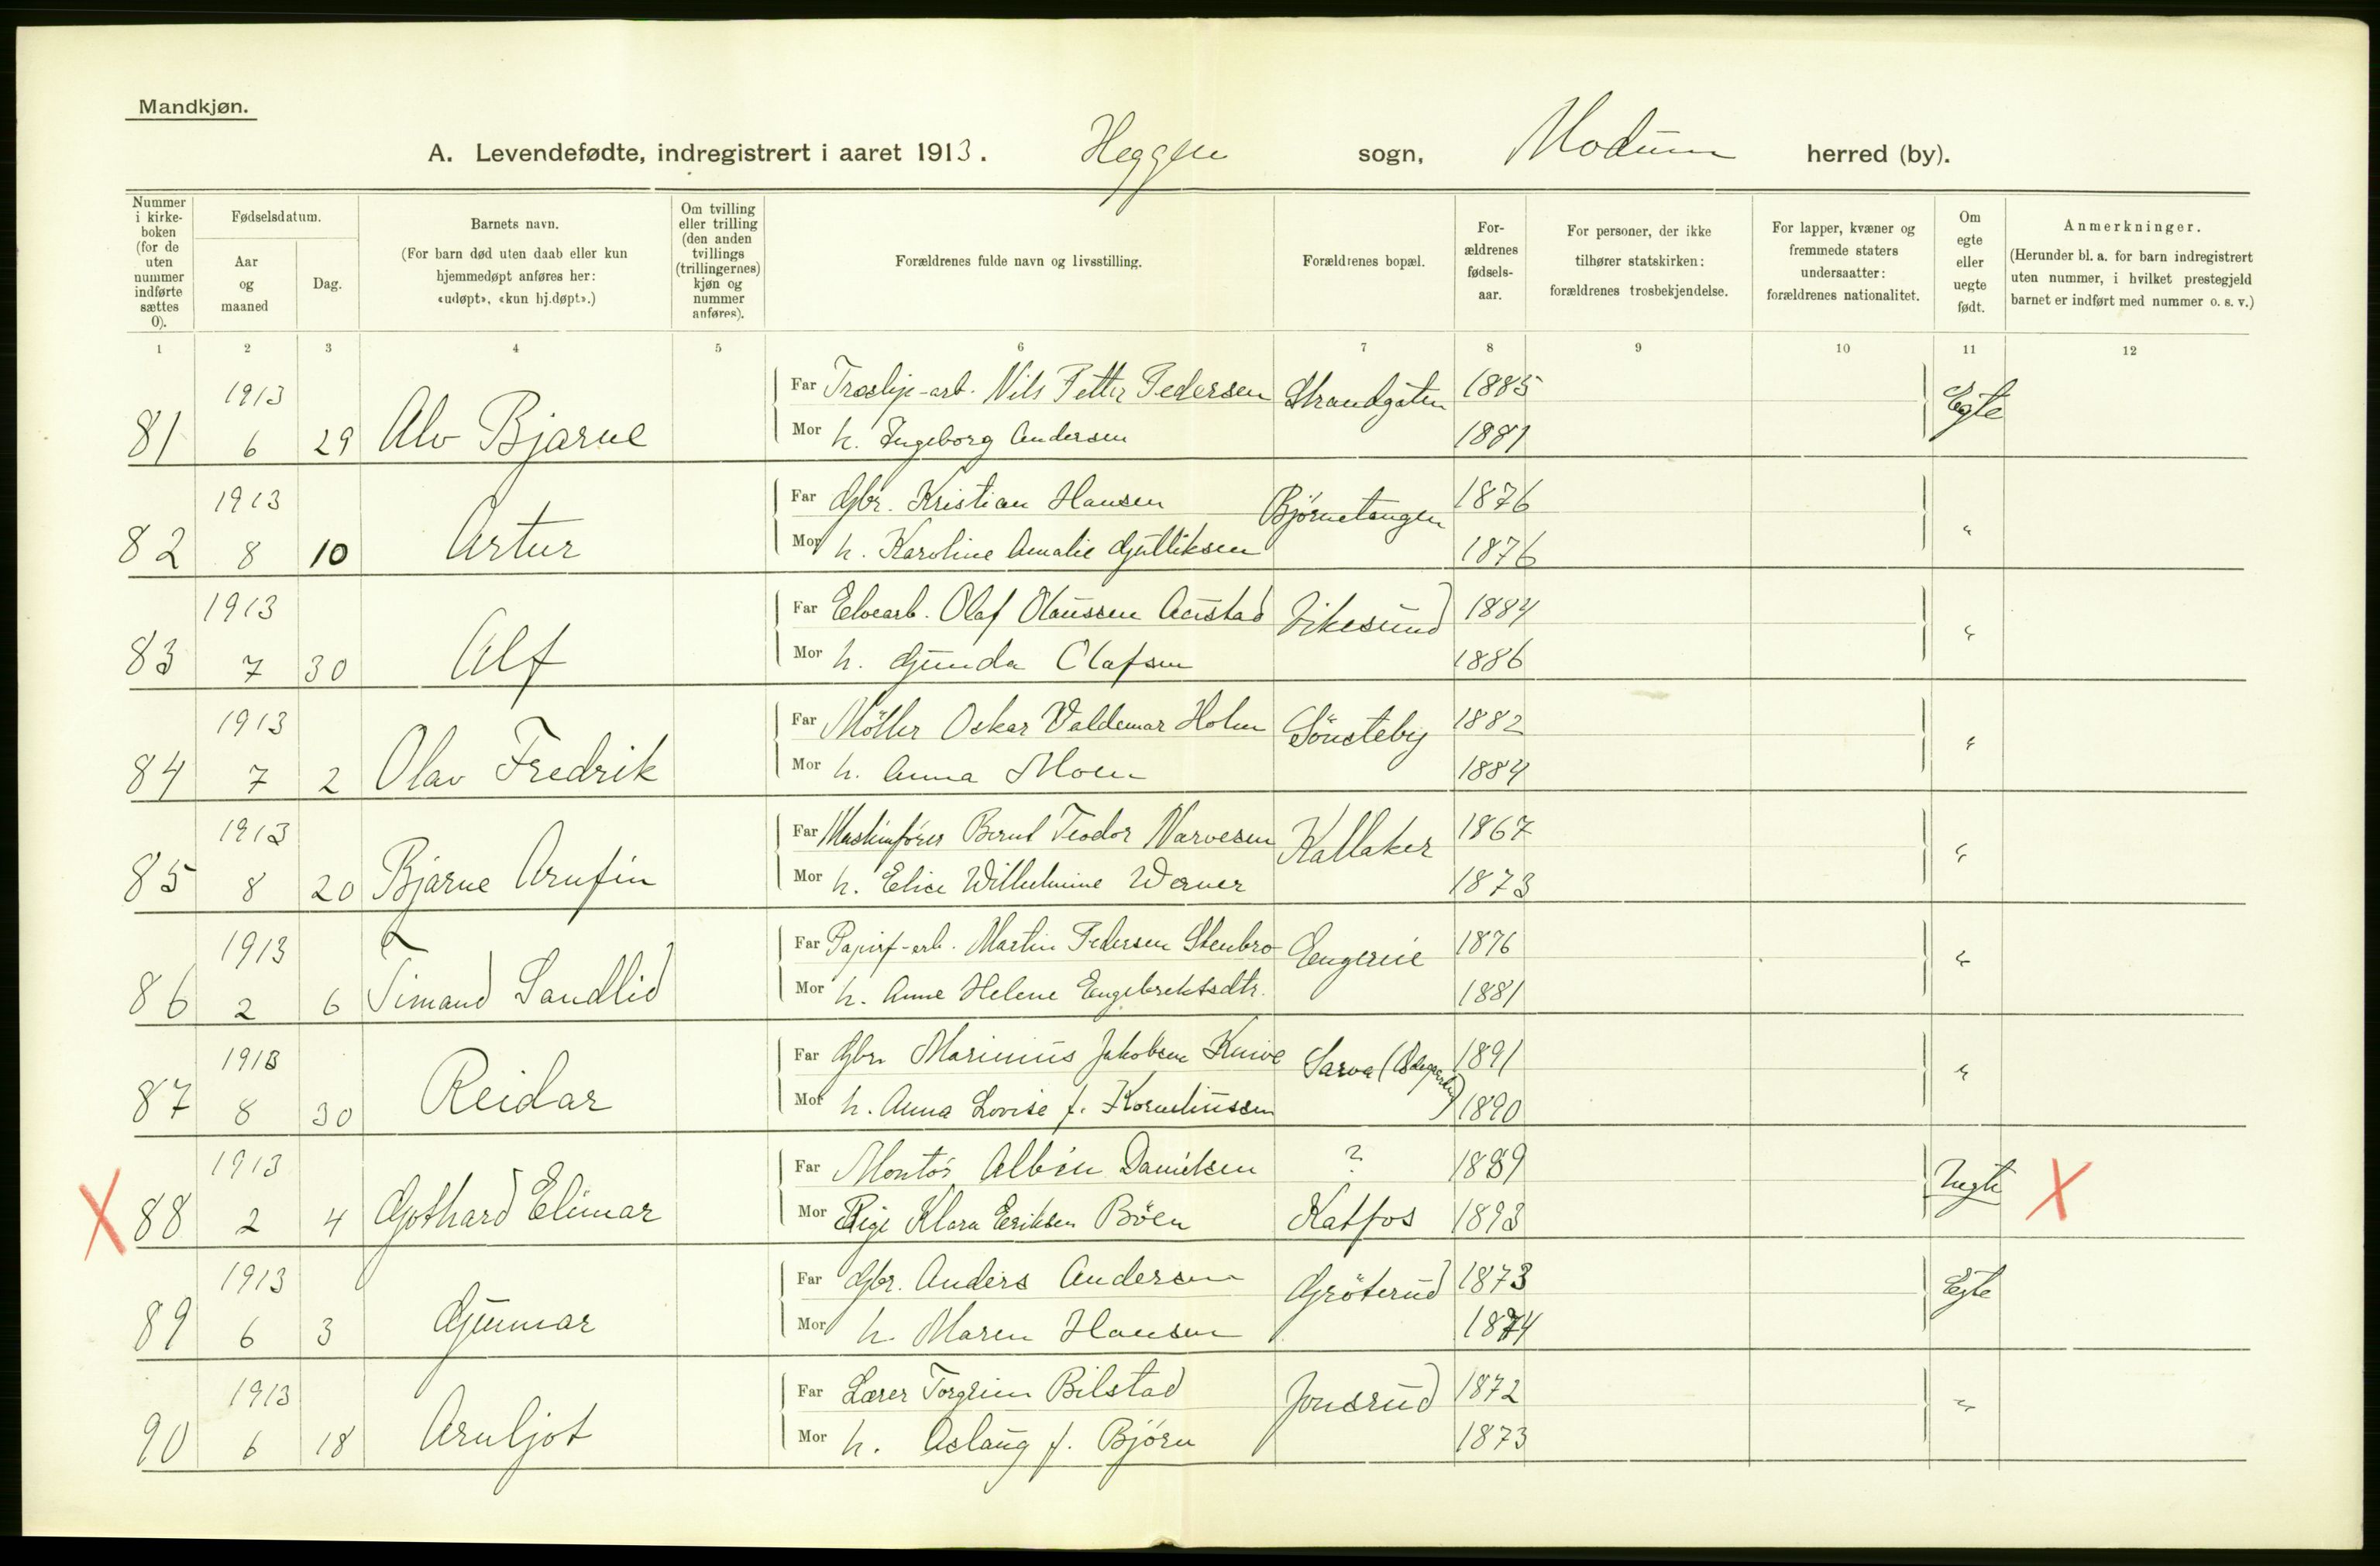 Mandkjøn.
A. Levendefødte, indregistrert i aaret 1913. Heggen sogn, Modum herred (by).
Nummer i kirkeboken (for de uten nummer indførte sættes 0).
Fødselsdatum.
Aar og maaned
Dag.
Barnets navn.
(For barn død uten daab eller kun hjemmedøpt anføres her: «udøpt», «kun hj.døpt».)
Om tvilling eller trilling (den anden tvillings (trillingernes) kjøn og nummer anføres).
Forældrenes fulde navn og livsstilling.
Forældrenes bopæl.
For-ældrenes fødsels-aar.
For personer, der ikke tilhører statskirken: forældrenes trosbekjendelse.
For lapper, kvæner og fremmede staters undersaatter: forældrenes nationalitet.
Om egte eller uegte født.
Anmerkninger.
(Herunder bl. a. for barn indregistrert uten nummer, i hvilket prestegjeld barnet er indført med nummer o. s. v.)
1 2 3 4 5 6 7 8 9 10 11 12
81 1913 6 29 Alv Bjarne Far Træslip-arb. Nils Petter Pedersen Strandgaten 1885 Egte
Mor h. Ingeborg Andersen 1881
82 1913 8 10 Artur Far Gbr. Kristian Hansen Bjørnetangen 1876 "
Mor h. Karoline Amalie Gulliksen 1876
83 1913 7 30 Alf Far Elvearb. Olaf Olaussen Aaustad Vikesund 1884 "
Mor h. Gunda Olafsen 1886
84 1913 7 2 Olav Fredrik Far Møller Oskar Valdemar Holm Sönsteby 1882 "
Mor h. Anna Moen 1884
85 1913 8 20 Bjarne Arnfin Far Maskinfører Bernt Teodor Narvesen Kallaker 1867 "
Mor h. Elise Wilhelmine Werner 1873
86 1913 2 6 Timand Sandlid Far Papirf-arb. Martin Pedersen Stenbro Engerie 1876 "
Mor h. Anne Helene Engebrektsdtr. 1881
87 1913 8 30 Reidar Far Gbr. Marinius Jakobsen Knive 1891 "
Mor h. Anna Lovise f. Korneliussen 1890
X 88 1913 2 4 Gothard Elimar Far Montör Albin Danielsen ? 1889 Uegte X
Mor Pige Klara Eriksen Böen Katfos 1893
89 1913 6 3 Gunnar Far Gbr. Anders Andersen Gröterud 1873 Egte
Mor h. Maren Hansen 1874
90 1913 6 18 Arnljot Far Lærer Torgrim Bilstad Jonsrud 1872 "
Mor h. Aslaug f. Björn 1873